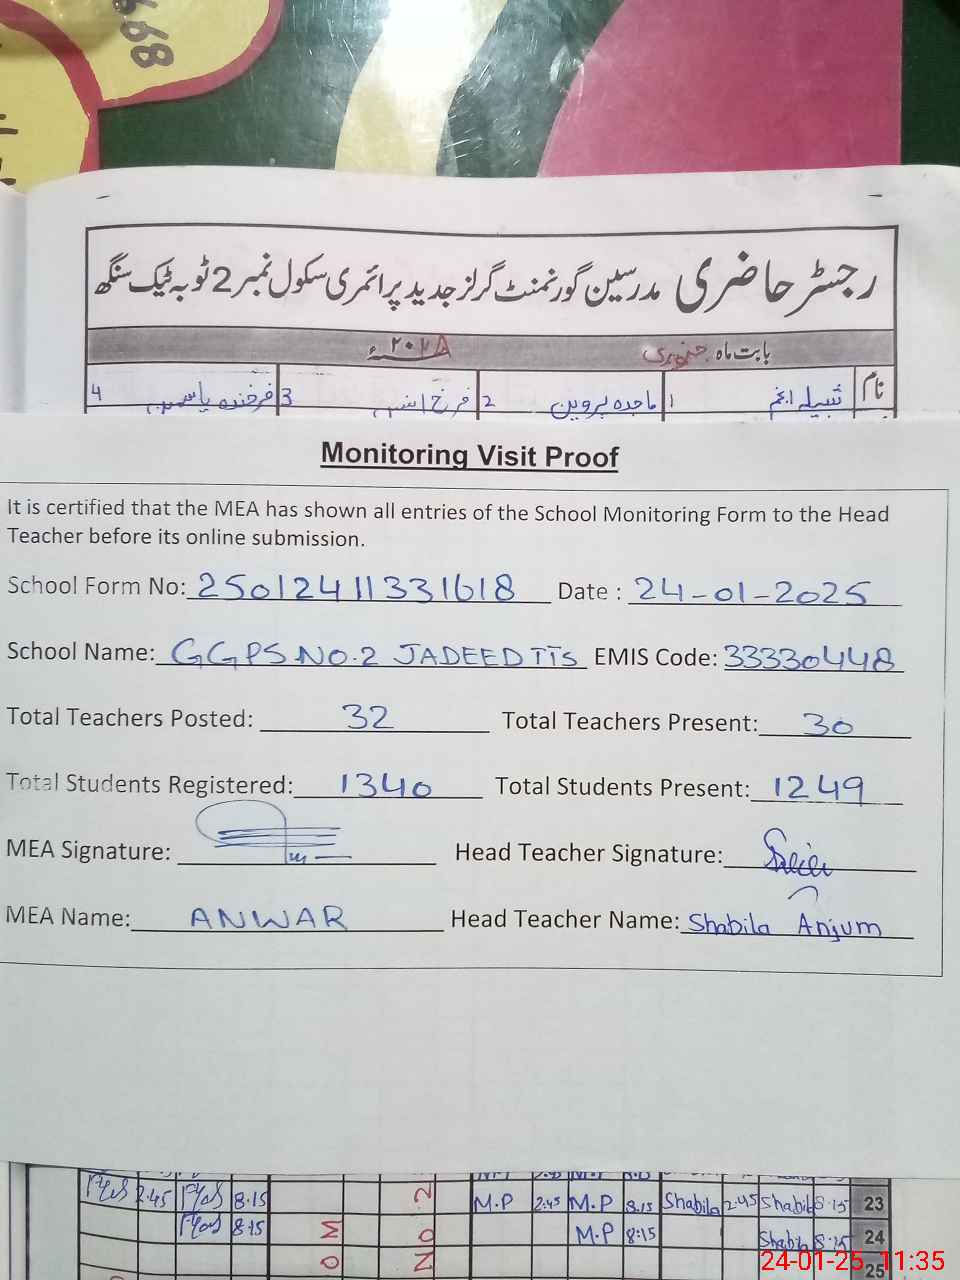 898
رجسٹر حاضری مدرسین گورنمنٹ گرلز جدید پرائمری سکول نمبر 2 ٹوبہ ٹیک سنگھ
بابت ماہ جنوری ۲۰۲۵ء
نام شبیلہ انجم 1 ماجدہ پروین 2 فرخ 3 فرخندہ یاسمین 4
Monitoring Visit Proof
It is certified that the MEA has shown all entries of the School Monitoring Form to the Head
Teacher before its online submission.
School Form No: 25012411331618 Date : 24-01-2025
School Name: GGPS NO.2 JADEED TTS EMIS Code: 33330448
Total Teachers Posted: 32 Total Teachers Present: 30
Total Students Registered: 1340 Total Students Present: 1249
MEA Signature: Head Teacher Signature:
MEA Name: ANWAR Head Teacher Name: Shabila Anjum
2.45 8.15 NO.2 M.P 2.45 M.P 8.15 Shabila 2.45 Shabila 8.15 23
8:15 M M.P 8:15 Shabila 8.15 24
O 25
24-01-25 11:35